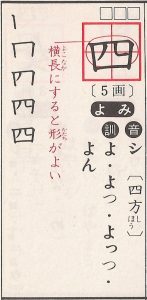 四
〔5画〕
よみ
音 シ〔四方〕
しほう
訓 よ・よつ・よっつ・よん
横長にすると形がよい
よこなが
かたち